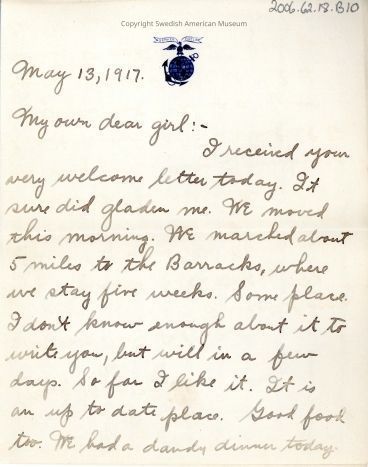 2006.62.18.B10
Copyright Swedish American Museum
May 13, 1917.
My own dear girl:-
I received your
very welcome letter today. It
sure did gladen me. We moved
this morning. We marched about
5 miles to the Barracks, where
we stay five weeks. Some place.
I don't know enough about it to
write you, but will in a few
days. So far I like it. It is
an up to date place. Good food
too. We had a dandy dinner today.